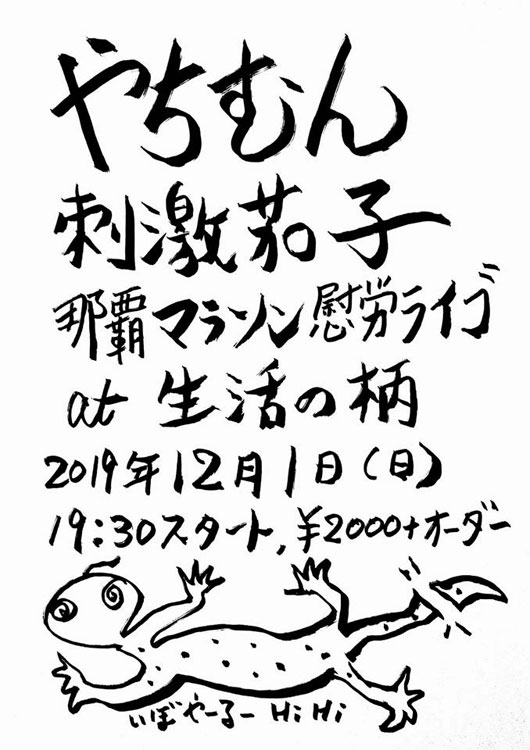 やちむん
刺激茄子
那覇マラソン慰労ライブ
at 生活の柄
2019年12月1日(日)
19:30スタート,¥2000+オーダー
いぼやーるー HiHi